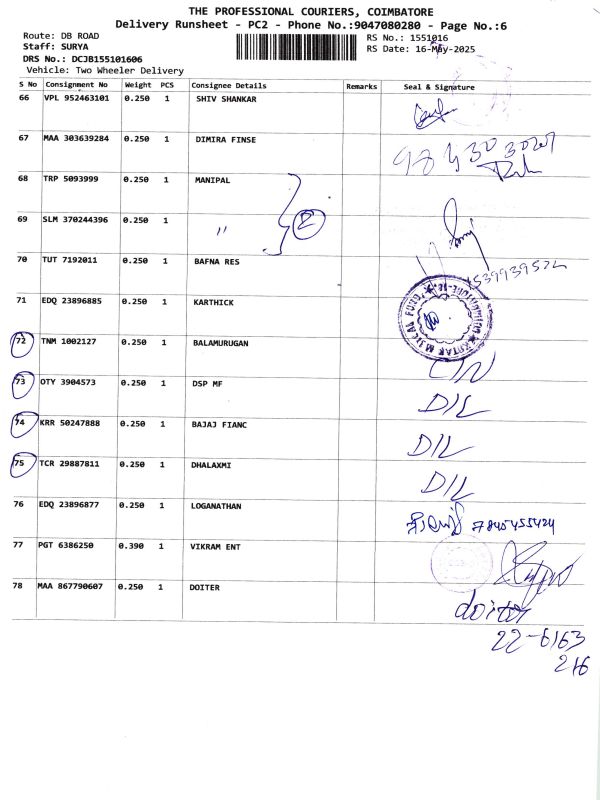 THE PROFESSIONAL COURIERS, COIMBATORE
Delivery Runsheet - PC2 - Phone No.:9047080280 - Page No.:6
Route: DB ROAD RS No.: 1551016
Staff: SURYA RS Date: 16-May-2025
DRS No.: DCJB155101606
Vehicle: Two Wheeler Delivery
S No Consignment No Weight PCS Consignee Details Remarks Seal & Signature
66 VPL 952463101 0.250 1 SHIV SHANKAR
67 MAA 303639284 0.250 1 DIMIRA FINSE
68 TRP 5093999 0.250 1 MANIPAL
69 SLM 370244396 0.250 1 〃 2
70 TUT 7192011 0.250 1 BAFNA RES
71 EDQ 23896885 0.250 1 KARTHICK
72 TNM 1002127 0.250 1 BALAMURUGAN
73 OTY 3904573 0.250 1 DSP MF D/L
74 KRR 50247888 0.250 1 BAJAJ FIANC D/L
75 TCR 29887811 0.250 1 DHALAXMI D/L
76 EDQ 23896877 0.250 1 LOGANATHAN 7845455424
77 PGT 6386250 0.390 1 VIKRAM ENT
78 MAA 867790607 0.250 1 DOITER doiter
22-6163
216